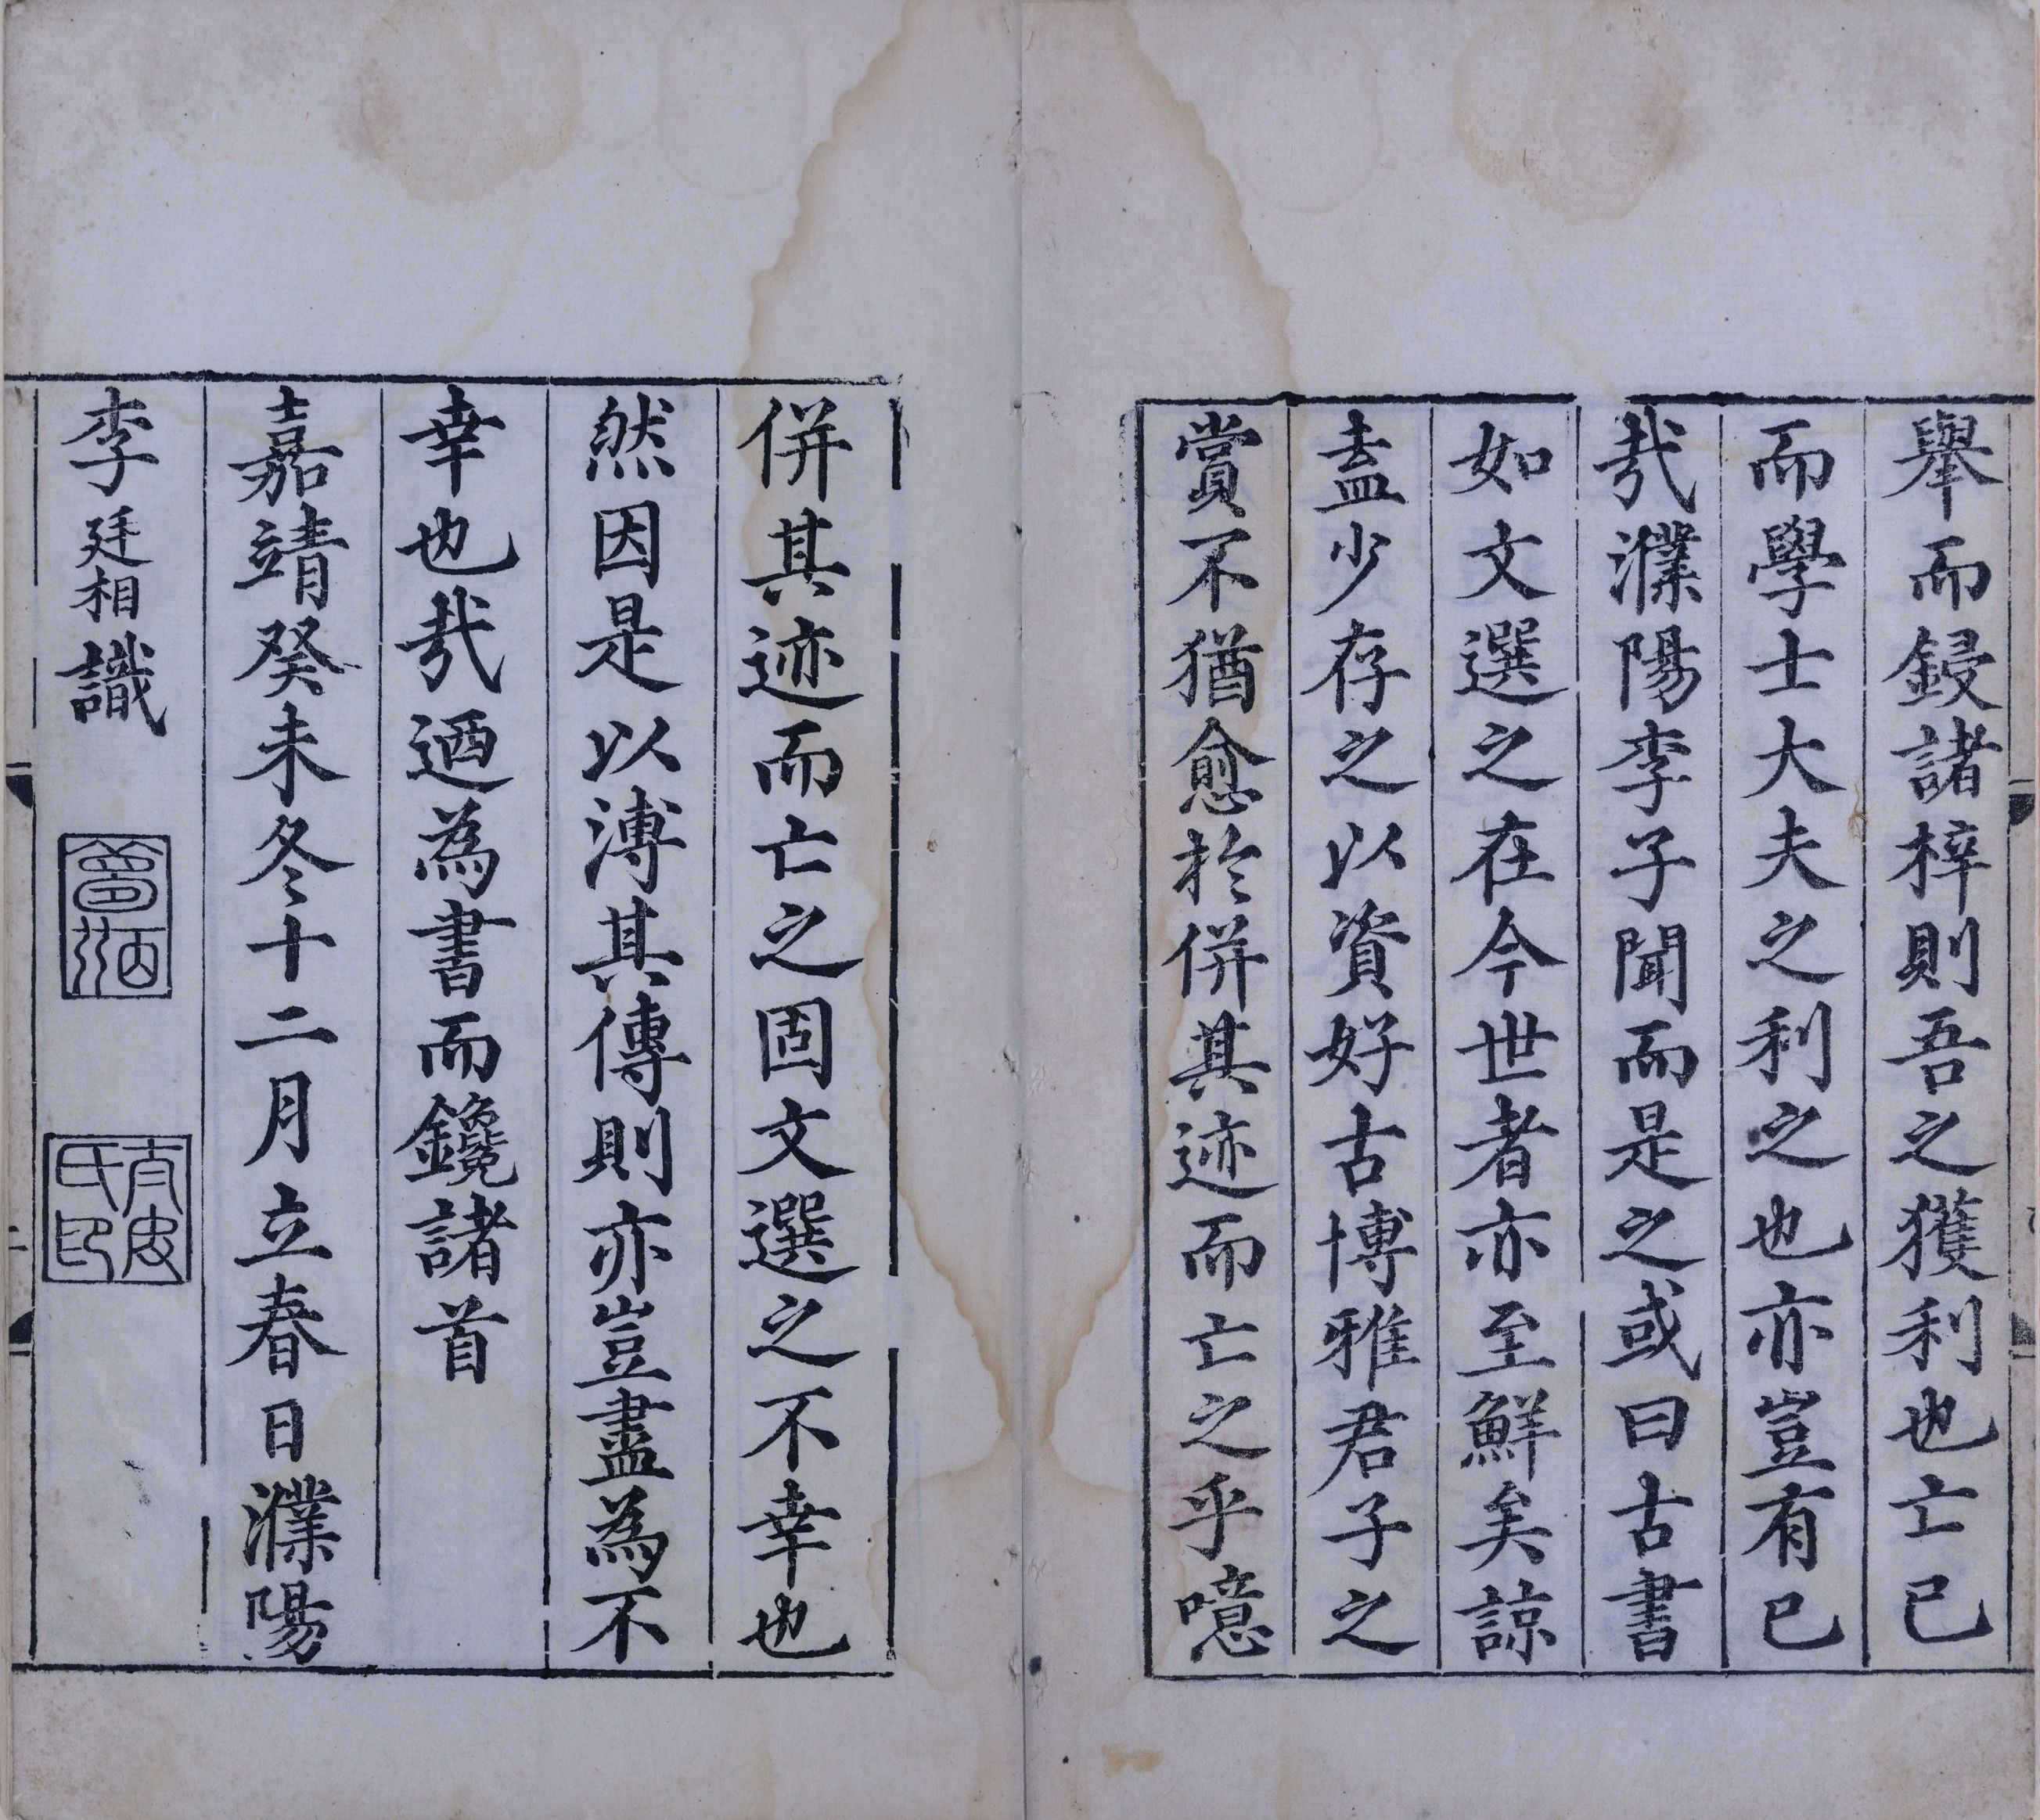 舉而鋟諸梓則吾之獲利也亡已
而學士大夫之利之也亦豈有已
㢤濮陽李子聞而是之或曰古書
如文選之在今世者亦至鮮矣諒
盍少存之以資好古博雅君子之
賞不猶愈於併其迹而亡之乎噫
併其迹而亡之固文選之不幸也
然因是以溥其傳則亦豈盡為不
幸也㢤迺為書而鑱諸首
嘉靖癸未冬十二月立春日濮陽
李廷相識